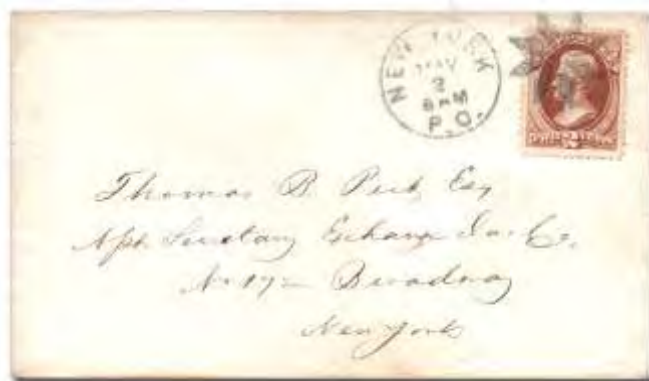 NEW YORK
MAY
2
6 PM
P.O.
Thomas B. Peck, Esq
Secretary Exchange Ins. Co.
No 172 Broadway
New York